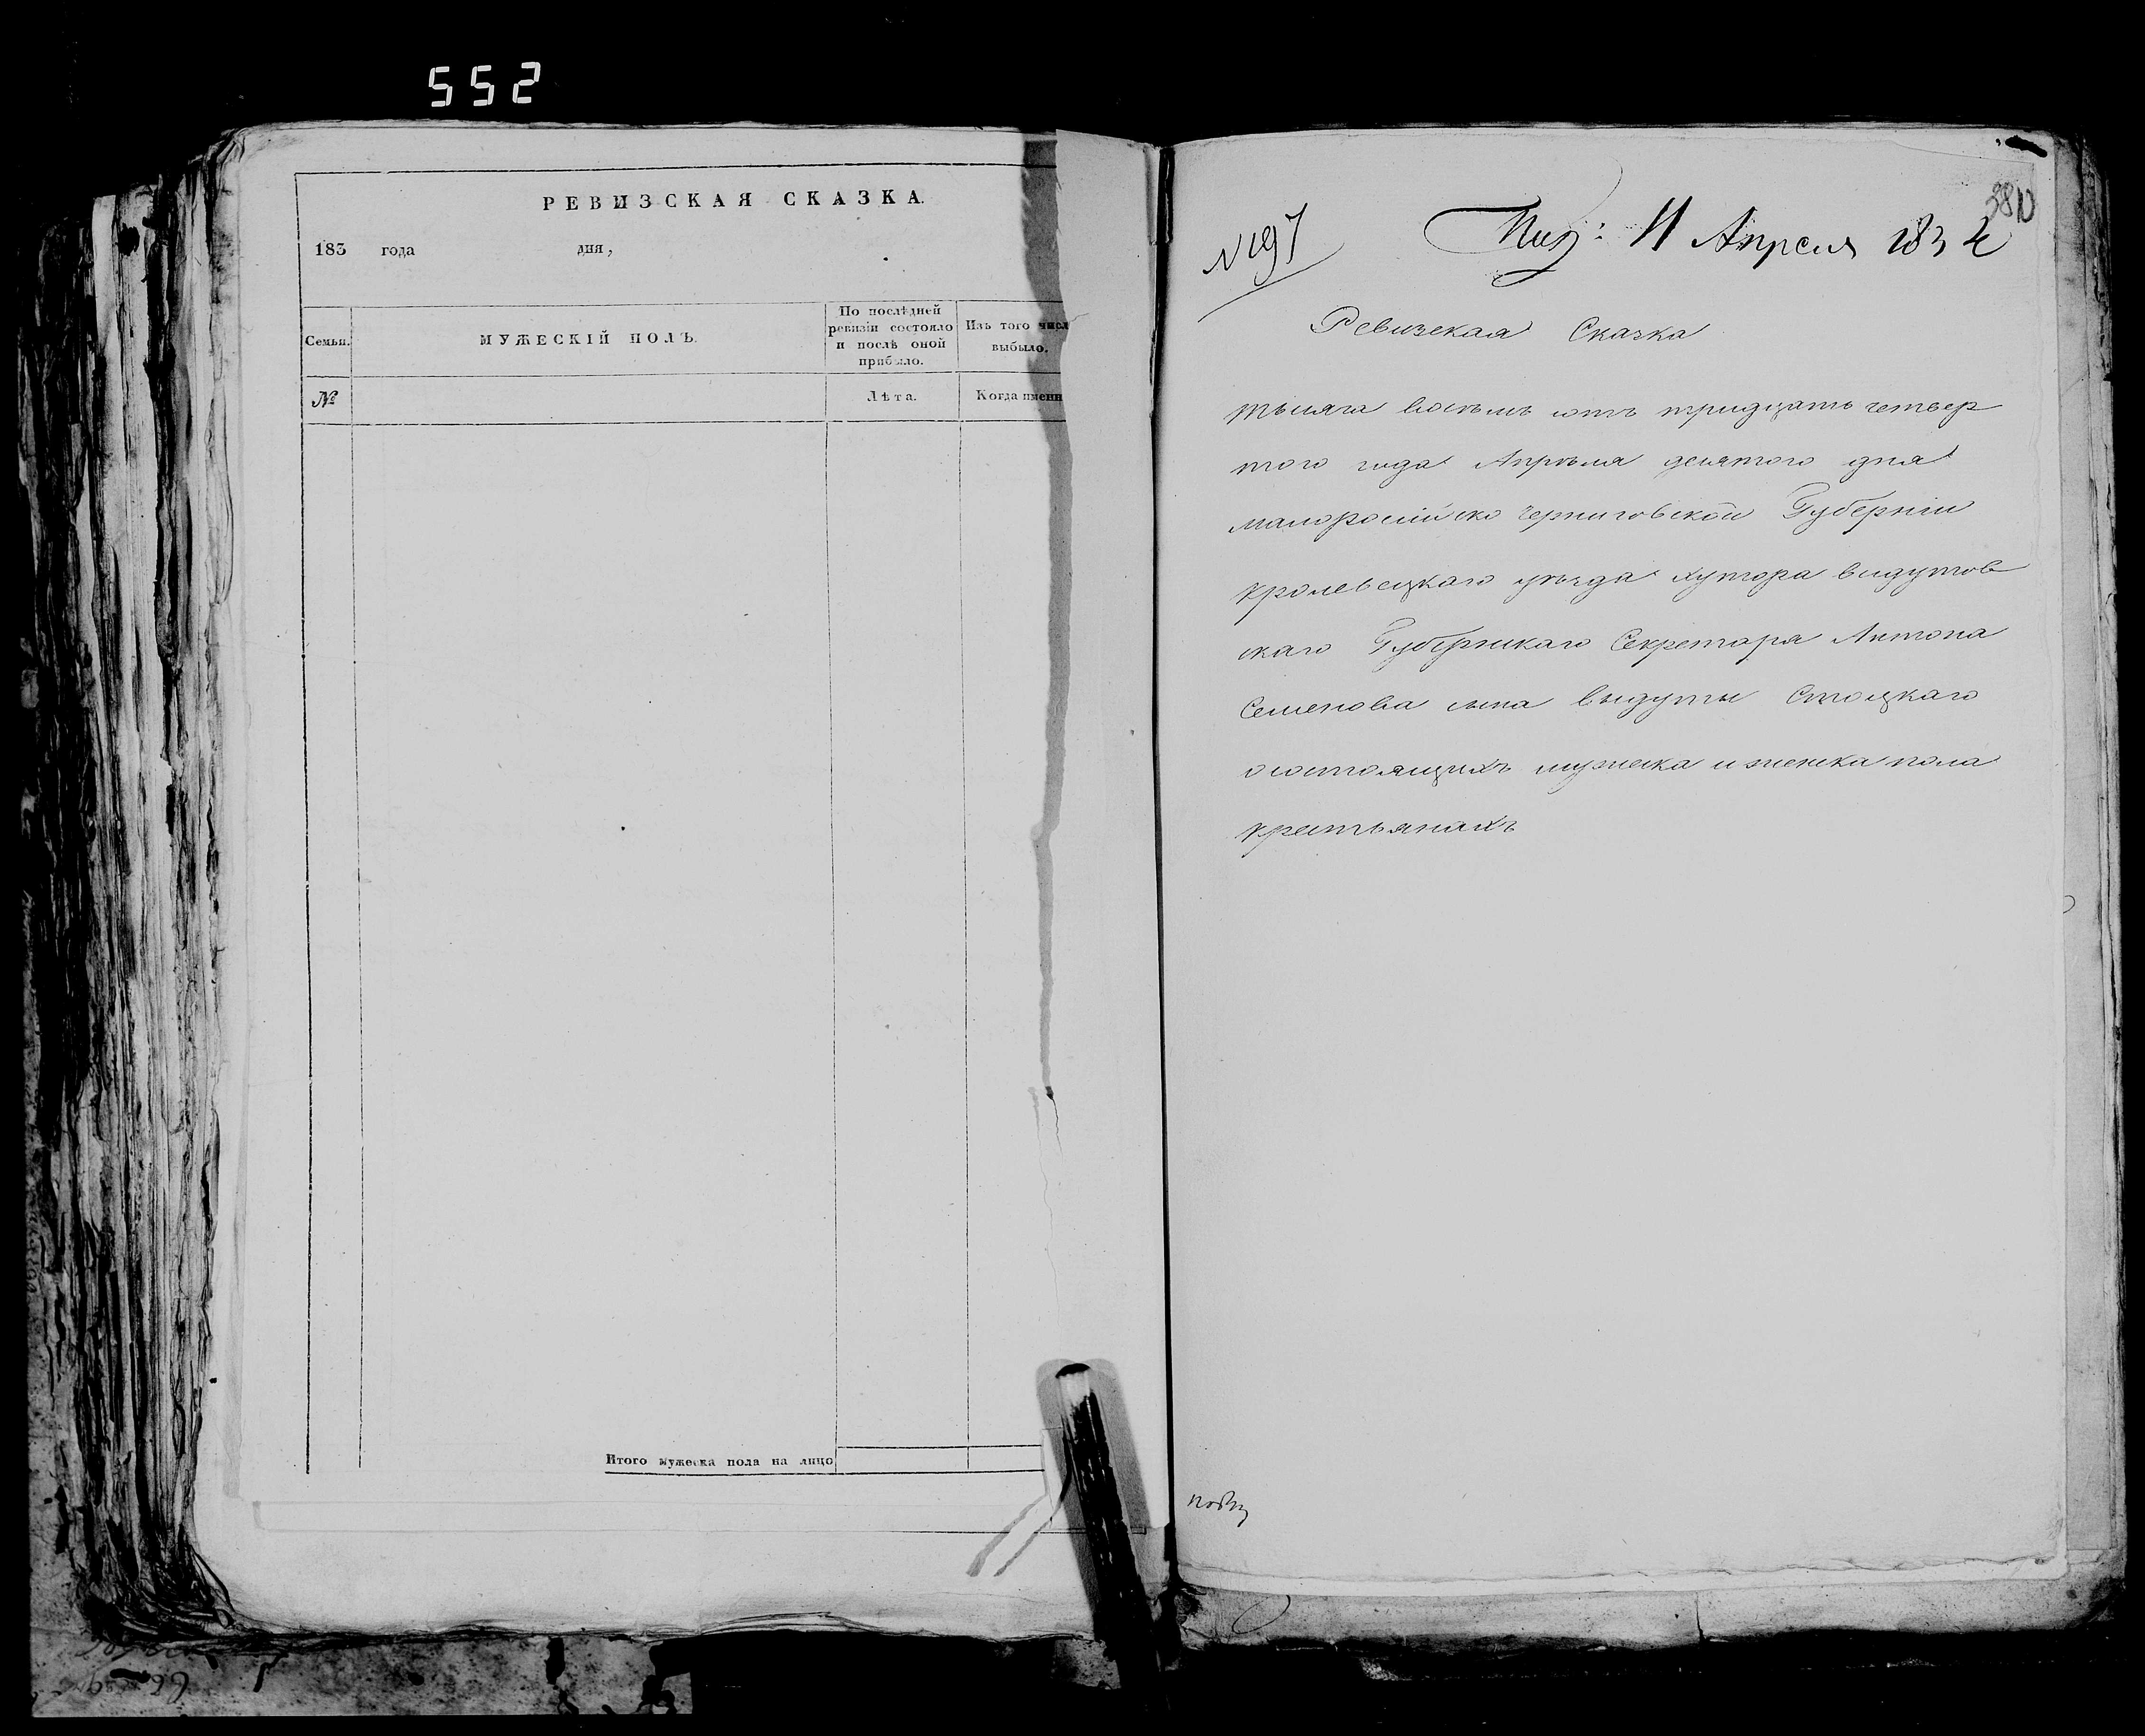 552
РЕВИЗСКАЯ СКАЗКА.
183 года дня,
Семьи.
МУЖЕСКІЙ ПОЛЪ.
По послѣдней
ревизіи состояло
и послѣ оной
прибыло.
Изъ того числ
выбыло.
№
Лѣта.
Когда именн
Итого мужеска пола на лицо
№ 197
11 Апреля 1834
Ревизская Сказка
тысяча восемь сотъ тридцать четвер
того года Апрѣля девятого дня
малоросийско черниговской Губернии
кролевецкаго уѣзда хутора видутов
скаго Губернскаго Секретара Антона
Семенова сына выдуты Стоцкаго
о состоящихъ мужеска и женска пола
крестьянахъ